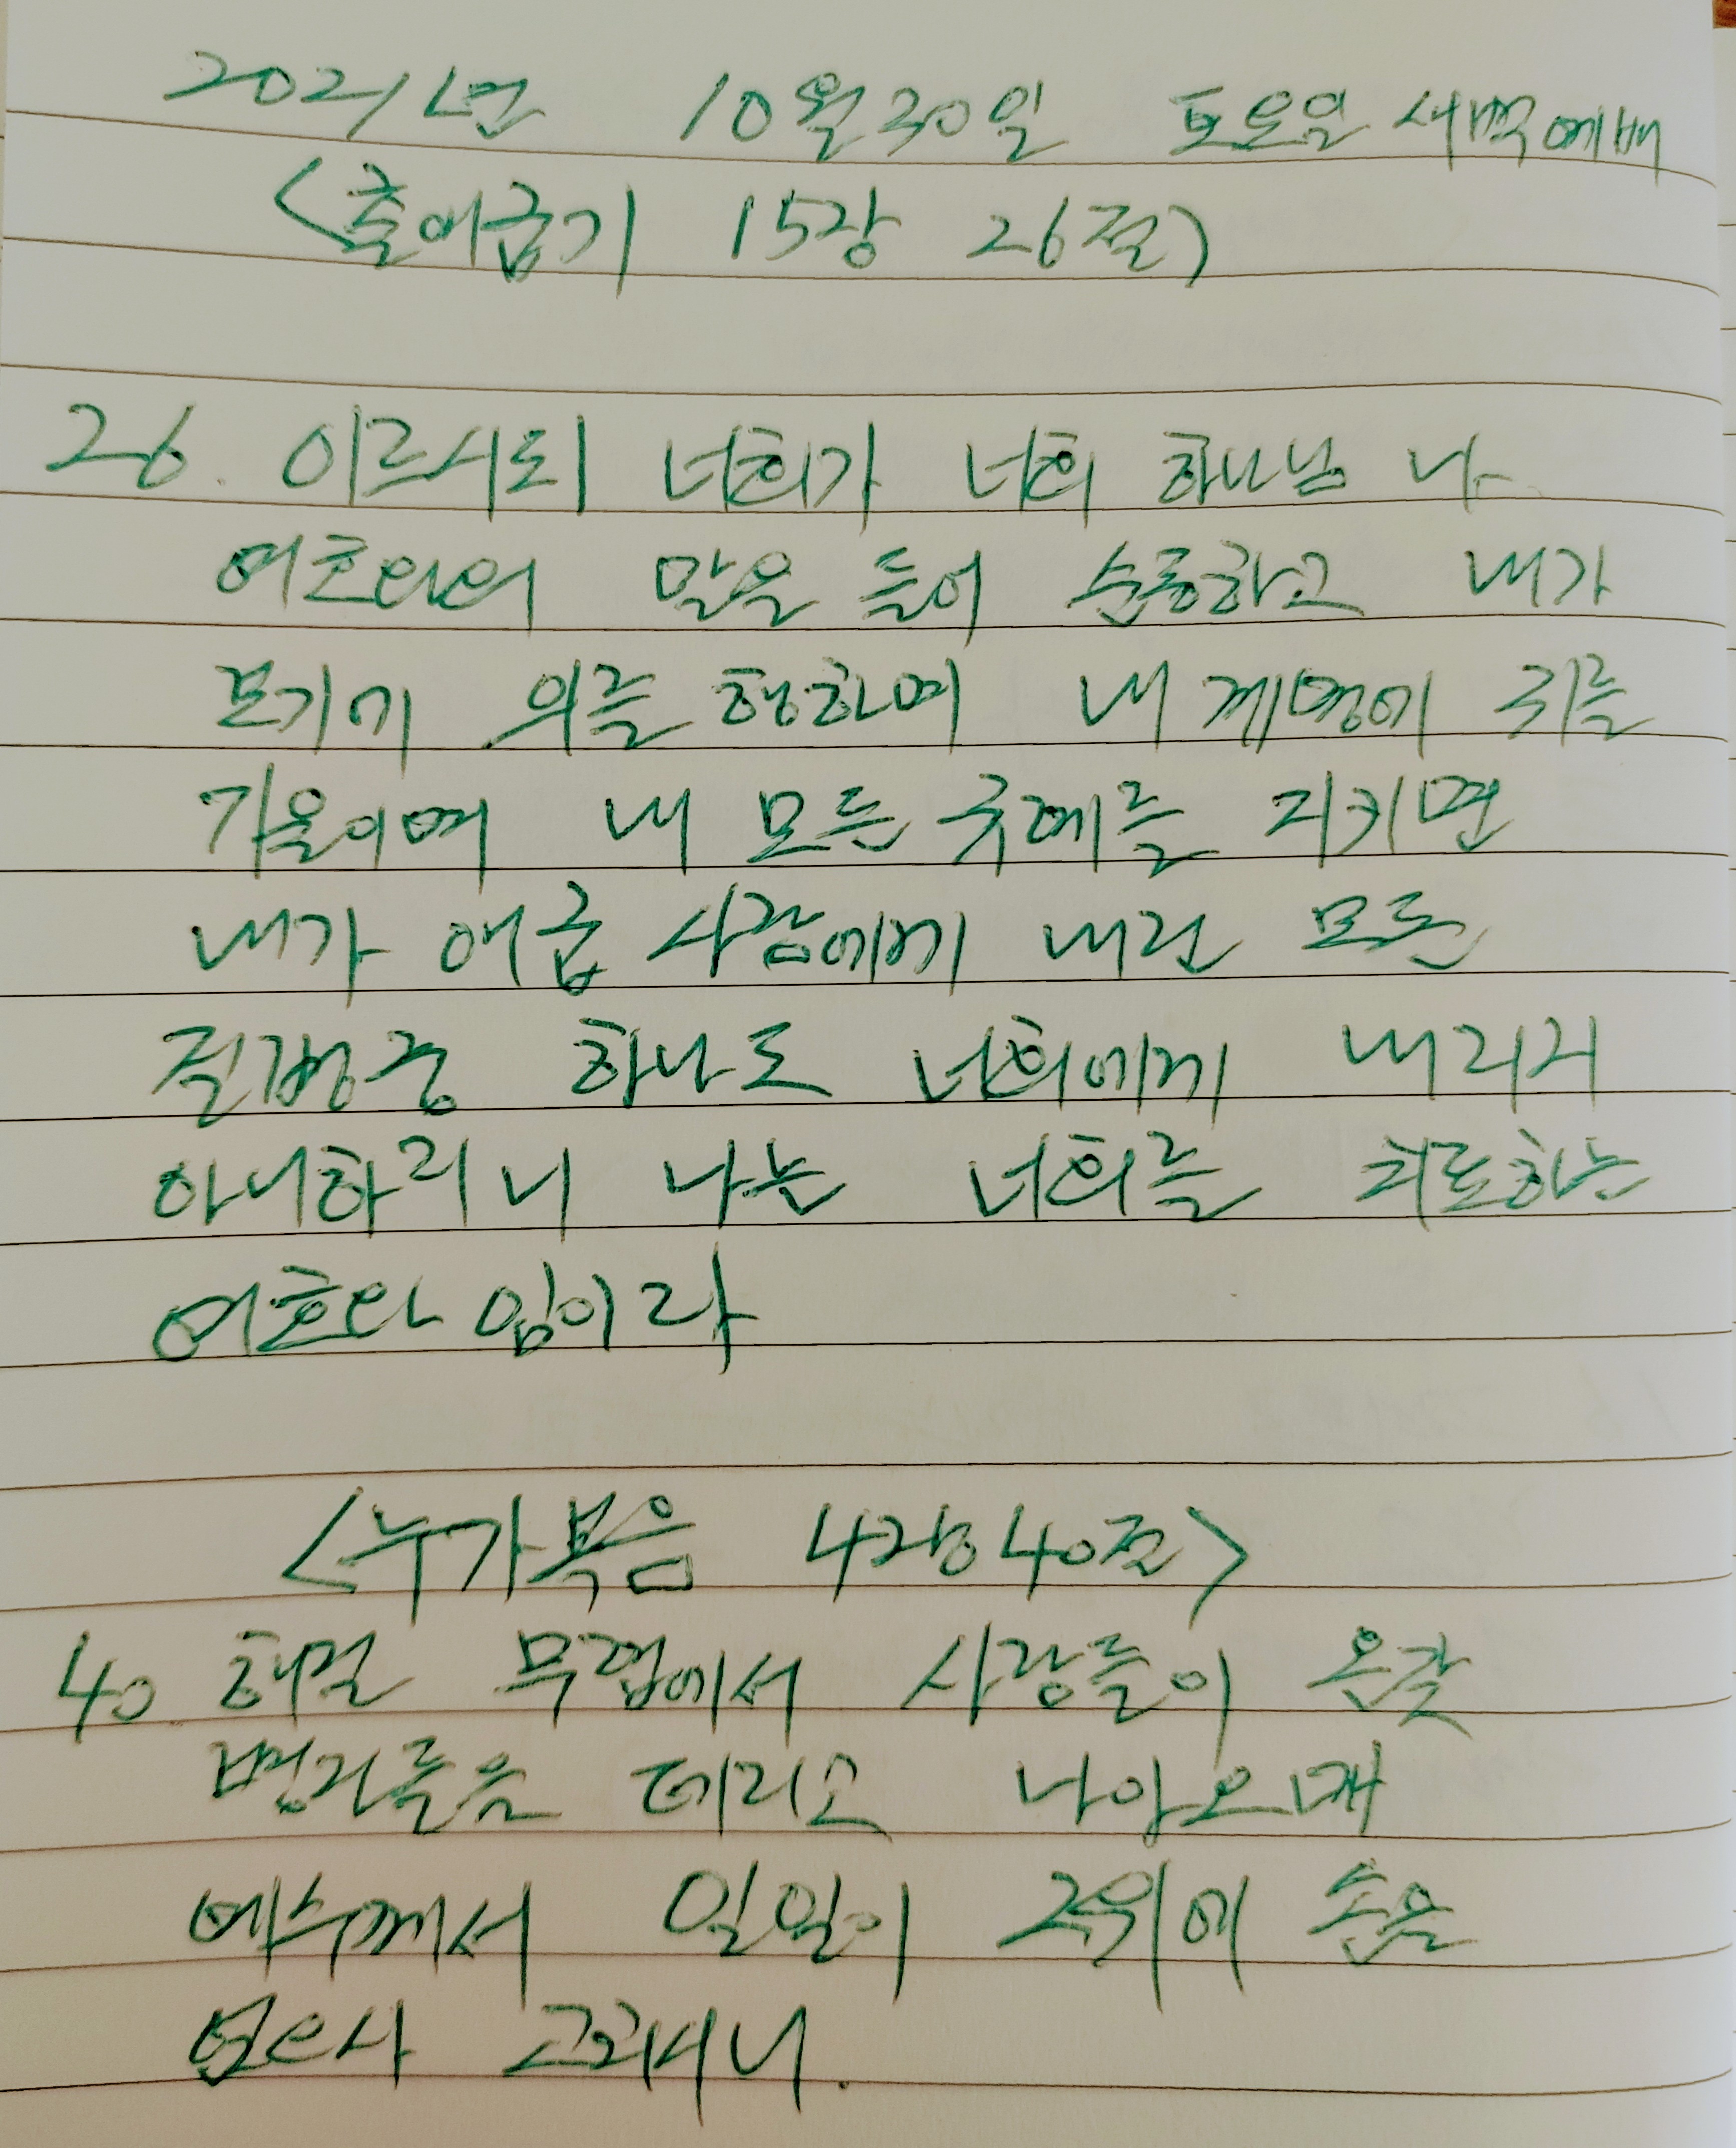 2021년 10월 30일 토요일 새벽예배
<출애굽기 15장 26절>
26. 이르시되 너희가 너희 하나님 나
여호와의 말을 들어 순종하고 내가
보기에 의를 행하며 내 계명에 귀를
기울이며 내 모든 규례를 지키면
내가 애굽 사람에게 내린 모든
질병중 하나도 너희에게 내리지
아니하리니 나는 너희를 치료하는
여호와 임이라
<누가복음 4장 40절>
40. 해질 무렵에서 사람들이 온갖
병자들을 데리고 나아오매
예수께서 일일이 그위에 손을
얹으사 고치시니.